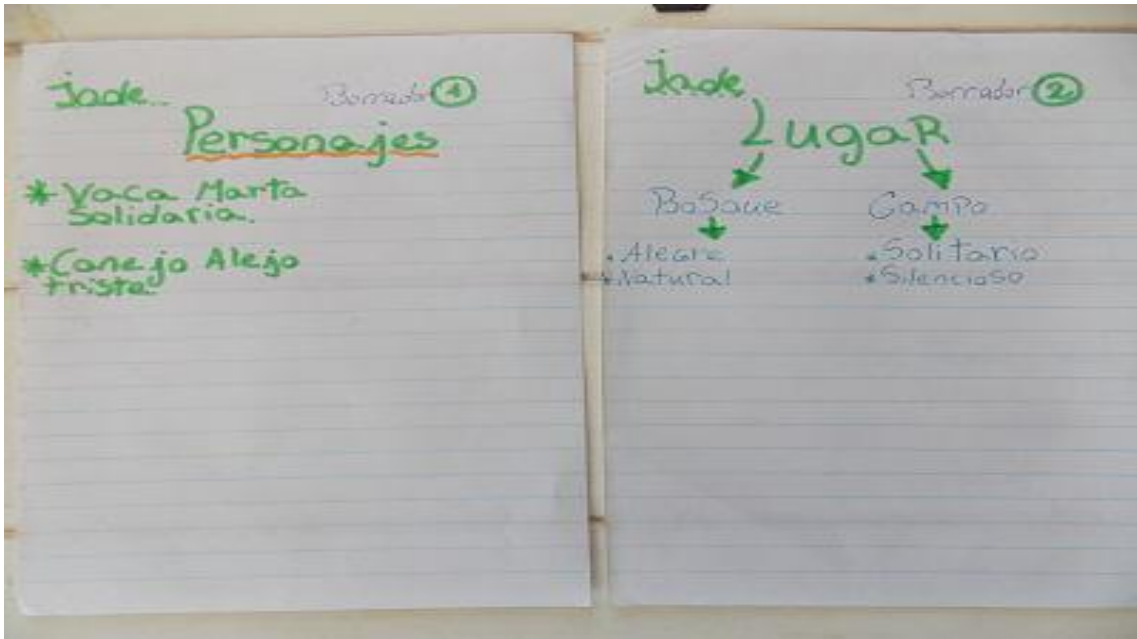 Jade
Borrador 1
Personajes
* Vaca Marta
Solidaria.
* Conejo Alejo
triste.
Jade
Borrador 2
LugaR
Bosque
Campo
• Alegre
• Natural
• Solitario
• Silencioso